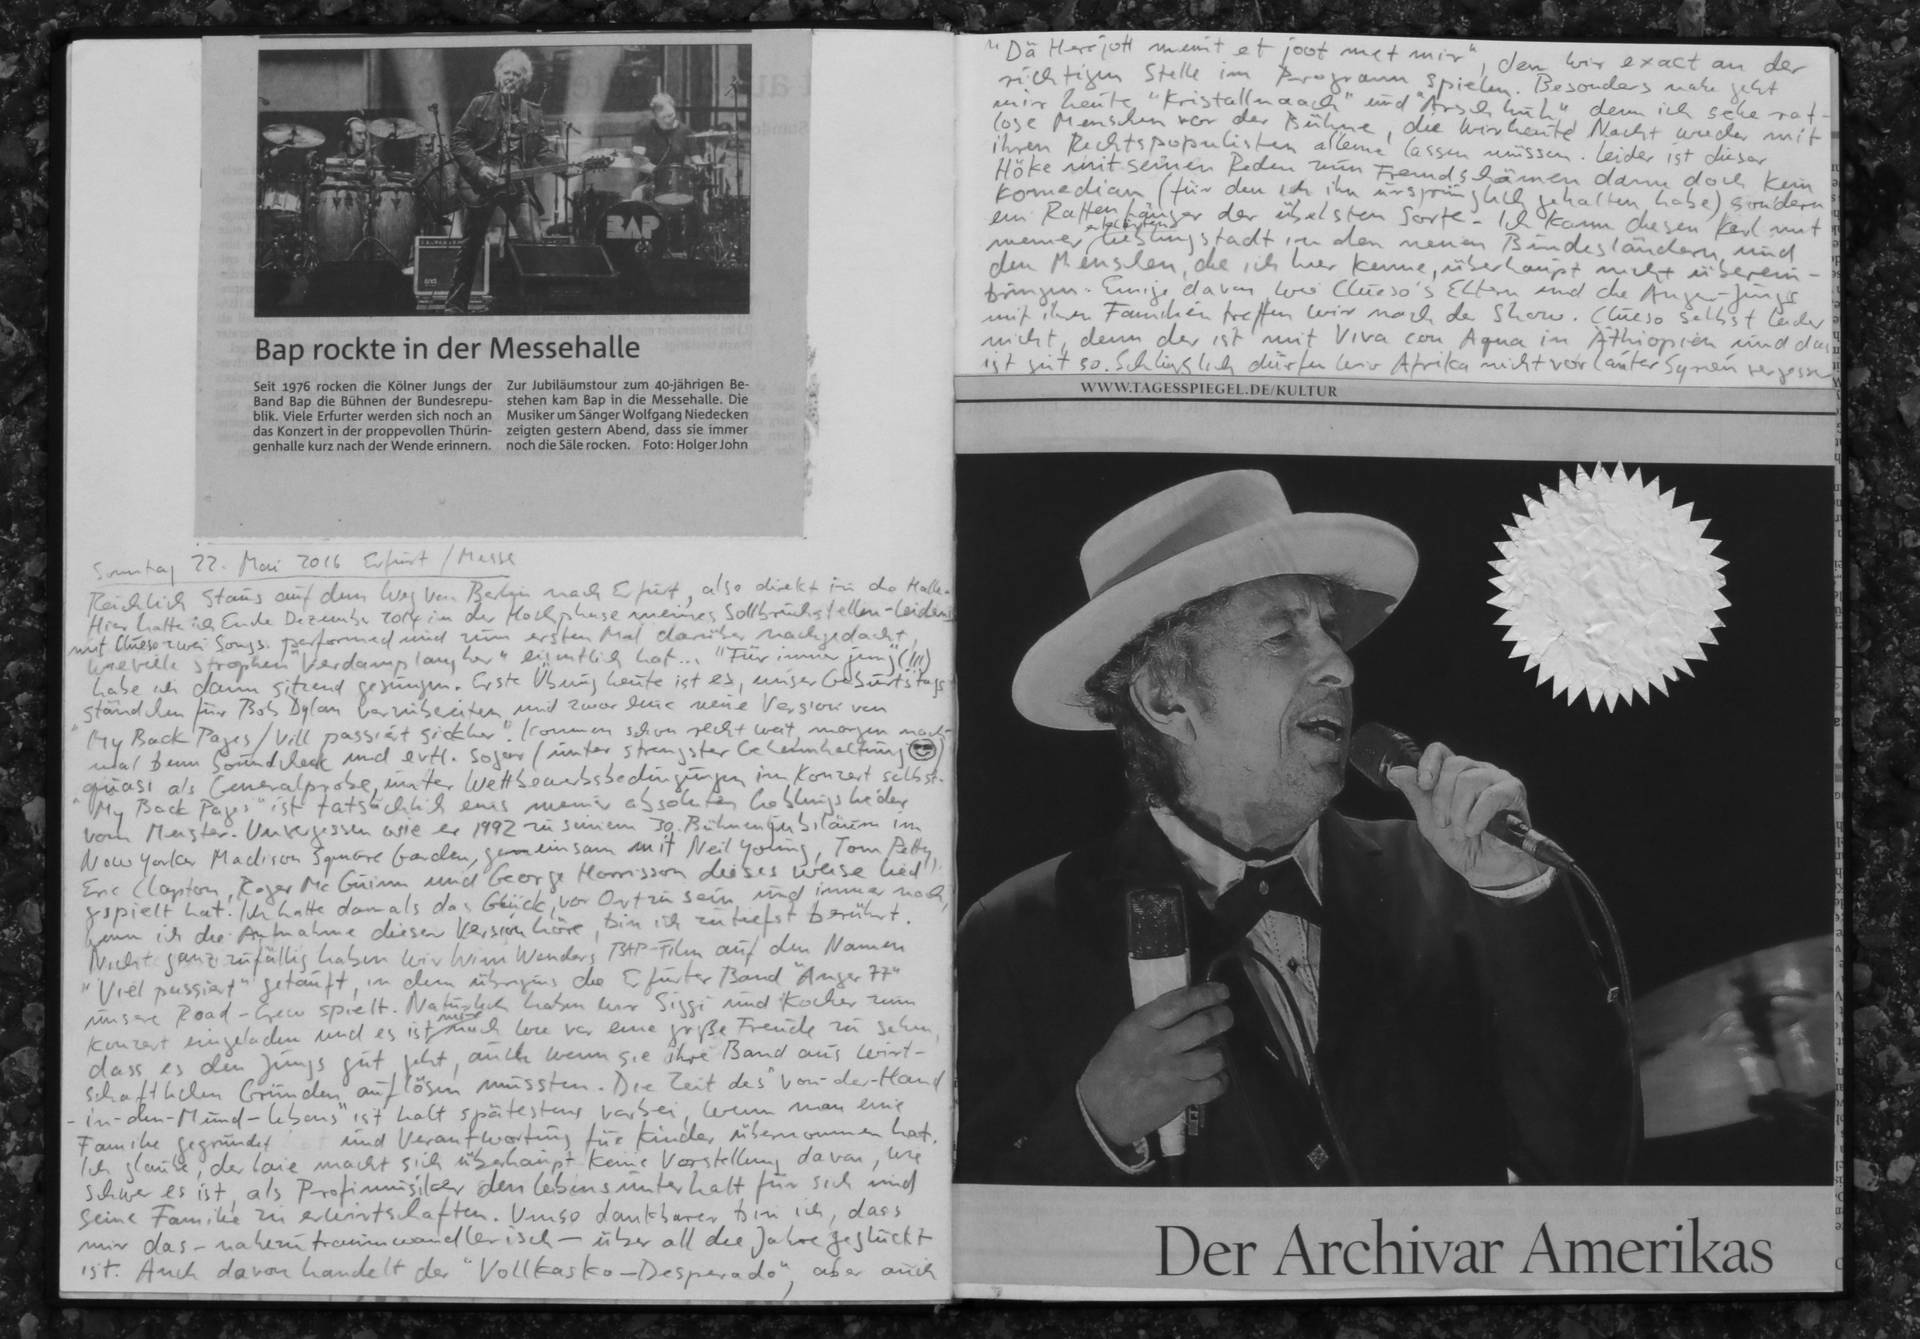 BAP
Bap rockte in der Messehalle
Seit 1976 rocken die Kölner Jungs der
Band Bap die Bühnen der Bundesrepu-
blik. Viele Erfurter werden sich noch an
das Konzert in der proppevollen Thürin-
genhalle kurz nach der Wende erinnern.
Zur Jubiläumstour zum 40-jährigen Be-
stehen kam Bap in die Messehalle. Die
Musiker um Sänger Wolfgang Niedecken
zeigten gestern Abend, dass sie immer
noch die Säle rocken. Foto: Holger John
Sonntag 22. Mai 2016 Erfurt / Messe
Reichlich Staus auf dem Weg von Berlin nach Erfurt, also direkt in die Halle.
Hier hatte ich Ende Dezember 2014 in der Hochphase meines Sollbruchstellen-Leidens
mit Clueso zwei Songs performed und zum ersten Mal darüber nachgedacht,
wieviele Strophen "Verdamp lang her" eigentlich hat... "Für immer jung" (!!!)
habe ich dann sitzend gesungen. Erste Übung heute ist es, unser Geburtstags-
ständchen für Bob Dylan vorzubereiten und zwar eine neue Version von
"My Back Pages / Vill passiert sickher". Kommen schon recht weit, morgen noch-
mal beim Soundcheck und evtl. sogar (unter strengster Geheimhaltung)
quasi als Generalprobe, unter Wettbewerbsbedingungen im Konzert selbst.
"My Back Pages" ist tatsächlich eins meiner absoluten Lieblingslieder
vom Meister. Unvergessen wie er 1992 zu seinem 30. Bühnenjubiläum im
New Yorker Madison Square Garden, gemeinsam mit Neil Young, Tom Petty,
Eric Clapton, Roger McGuinn und George Harrisson dieses weise Lied
gespielt hat. Ich hatte damals das Glück, vor Ort zu sein und immer noch,
wenn ich die Aufnahme dieser Version höre, bin ich zutiefst berührt.
Nicht ganz zufällig haben wir Wim Wenders BAP-Film auf den Namen
"Viel passiert" getauft, in dem übrigens die Erfurter Band "Anger 77"
unsere Road-Crew spielt. Natürlich haben wir Siggi und Kocher zum
Konzert eingeladen und es ist mir nach wie vor eine große Freude zu sehen,
dass es den Jungs gut geht, auch wenn sie ihre Band aus wirt-
schaftlichen Gründen auflösen mussten. Die Zeit des "von-der-Hand
-in-den-Mund-Lebens" ist halt spätestens vorbei, wenn man eine
Familie gegründet und Verantwortung für Kinder übernommen hat.
Ich glaube, der Laie macht sich überhaupt keine Vorstellung davon, wie
schwer es ist, als Profimusiker den Lebensunterhalt für sich und
seine Familie zu erwirtschaften. Umso dankbarer bin ich, dass
mir das - nahezu traumwandlerisch - über all die Jahre geglückt
ist. Auch davon handelt der "Vollkasko-Desperado", aber auch
"Dä Herrjott meint et joot met mir", den wir exact an der
richtigen Stelle im Programm spielen. Besonders nahe geht
mir heute "Kristallnaach" und "Arsch huh" denn ich sehe rat-
lose Menschen vor der Bühne, die wir heute Nacht wieder mit
ihren Rechtspopulisten alleine lassen müssen. Leider ist dieser
Höke mit seinen Reden zum Fremdschämen dann doch kein
Komedian (für den ich ihn ursprünglich gehalten habe) sondern
ein Rattenfänger der übelsten Sorte. Ich kann diesen Kerl mit
meiner erklärten Lieblingsstadt in den neuen Bundesländern und
den Menschen, die ich hier kenne, überhaupt nicht überein-
bringen. Einige davon wie Clueso's Eltern und die Anger-Jungs
mit ihren Familien treffen wir nach der Show. Clueso selbst leider
nicht, denn der ist mit Viva con Aqua in Äthiopien und das
ist gut so. Schließlich dürfen wir Afrika nicht vor lauter Syrien vergessen
WWW.TAGESSPIEGEL.DE/KULTUR
Der Archivar Amerikas